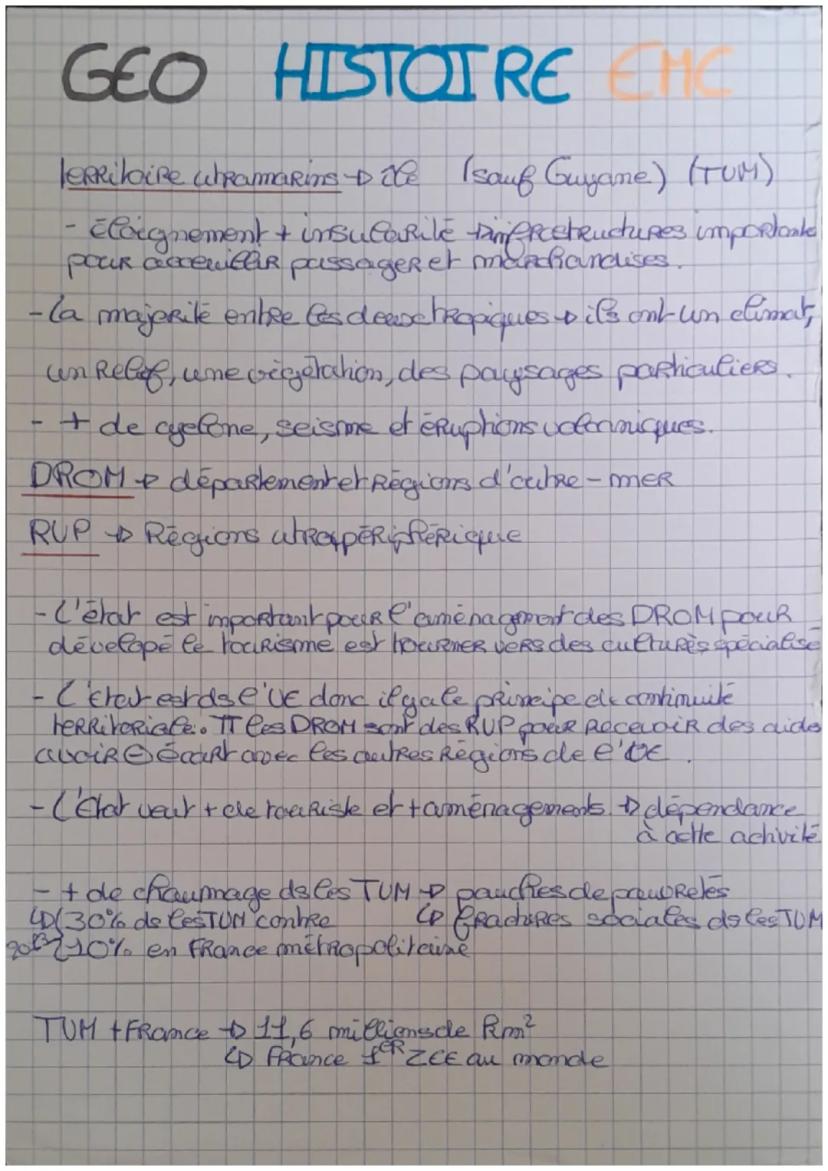 GEO HISTOIRE EMC
Territoire utramarins → île (sauf Guyane) (TUM)
- Éloignement + insularité → infrastructures importante
pour acceuillir passager et marchandises.
- La majorité entre les deux tropiques → ils ont un climat,
un relief, une végétation, des paysages particuliers.
- + de cyclone, seisme et éruptions volcaniques.
DROM → département et Régions d'outre-mer
RUP → Régions utrapériphérique
- L'état est important pour l'aménagement des DROM pour
développé le tourisme est tourner vers des cultures spécialisé
- L'état est ds l'UE donc il y a le principe de continuité
territoriale. TT les DROM sont des RUP pour recevoir des aide
avoir ⊖ écart avec les autres Régions de l'UE.
- L'état veut + de touriste et + aménagements → dépendance
à cette activité
- + de chaumage ds les TUM → pauches de pauvretés
↳ 30% ds les TUM contre ↳ fractures sociales ds les TUM
2013 10% en France métropolitaine
TUM + France → 11,6 millions de km²
↳ France 1ER ZEE au monde